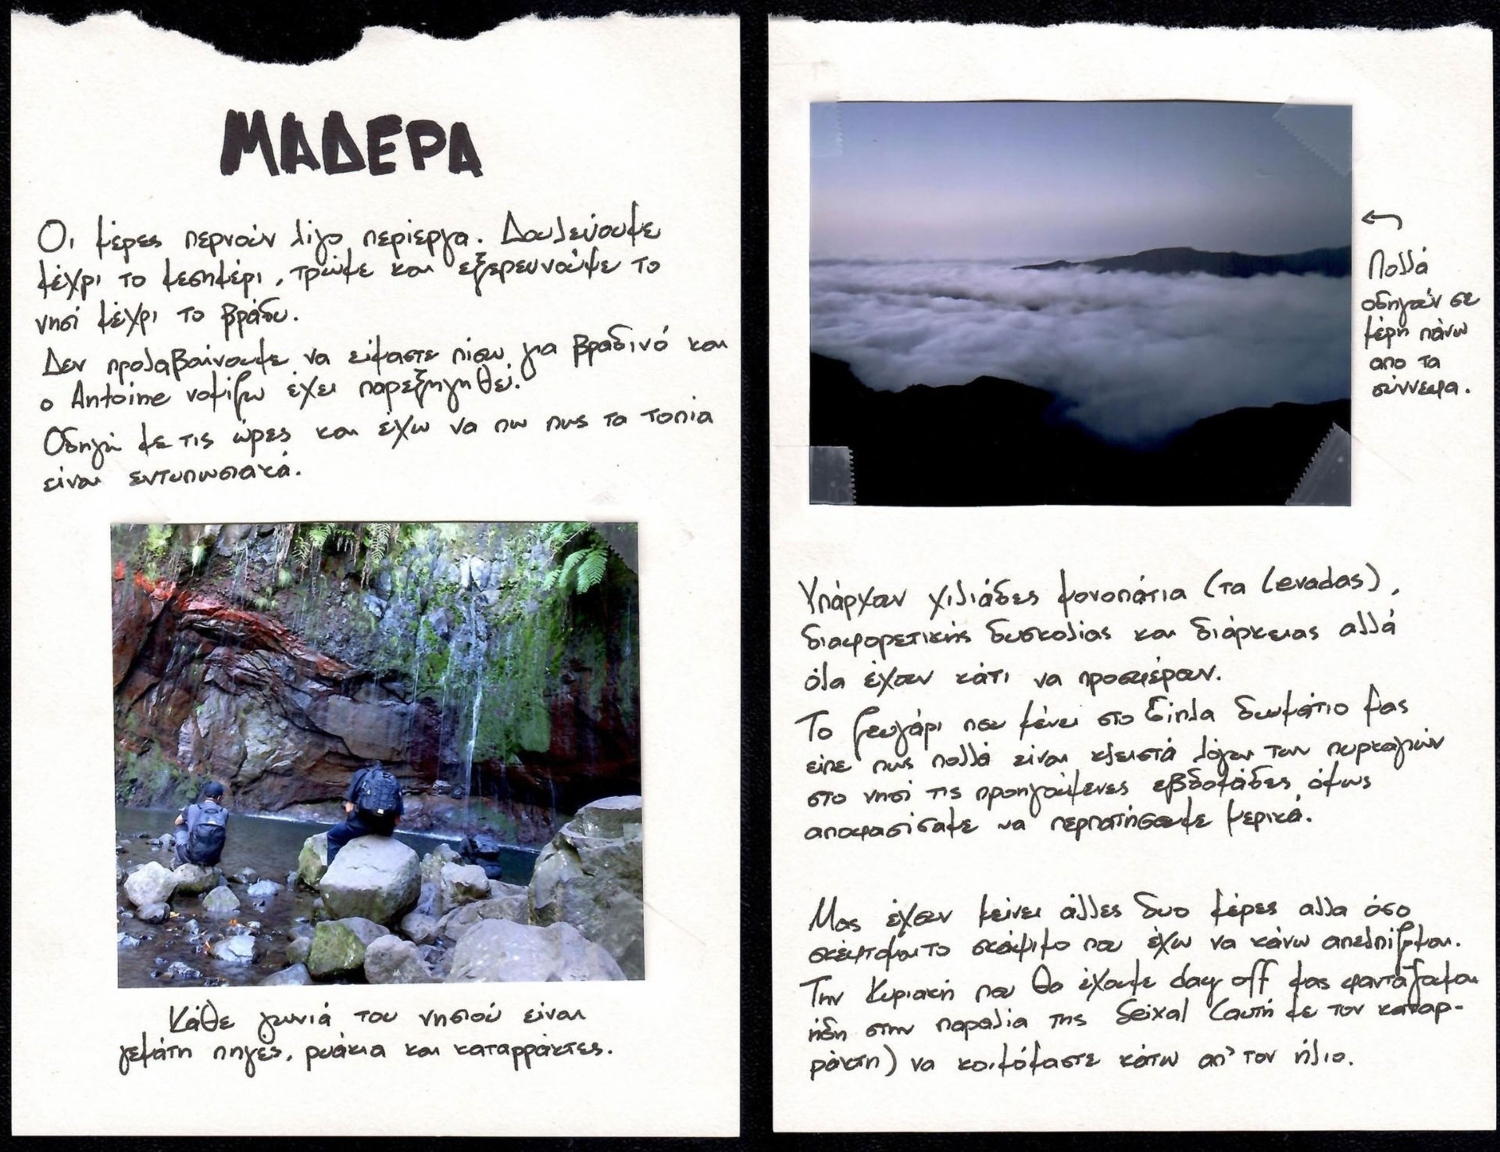 ΜΑΔΕΡΑ
Οι μέρες περνούν λίγο περίεργα. Δουλεύουμε
μέχρι το μεσημέρι, τρώμε και εξερευνούμε το
νησί μέχρι το βράδυ.
Δεν προλαβαίνουμε να είμαστε πίσω για βραδινό και
ο Antoine νομίζω έχει παρεξηγηθεί.
Οδηγώ με τις ώρες και έχω να πω πως τα τοπία
είναι εντυπωσιακά.
Κάθε γωνιά του νησιού είναι
γεμάτη πηγές, ρυάκια και καταρράκτες.
Πολλά
οδηγούν σε
μέρη πάνω
απο τα
σύννεφα.
Υπάρχουν χιλιάδες μονοπάτια (τα levadas),
διαφορετικής δυσκολίας και διάρκειας αλλά
όλα έχουν κάτι να προσφέρουν.
Το ζευγάρι που μένει στο δίπλα δωμάτιο μας
είπε πως πολλά είναι κλειστά λόγω των πυρκαγιών
στο νησί τις προηγούμενες εβδομάδες, όμως
αποφασίσαμε να περπατήσουμε μερικά.
Μας έχουν μείνει άλλες δυο μέρες αλλα όσο
σκέφτομαι το σκάψιμο που έχω να κάνω απελπίζομαι.
Την Κυριακή που θα έχουμε day off μας φαντάζομαι
ήδη στην παραλία της Seixal (αυτή με τον καταρ-
ράκτη) να κοιμόμαστε κάτω απ' τον ήλιο.